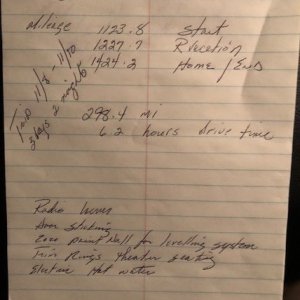 Mileage 1123.8 Start
1227.7 Rvocation
1424.2 Home / End
Trip 11/8 - 11/10
3 days 2 nights
298.4 mi
6.2 hours drive time
Radio
Door Sticking
Zero point Null for levelling system
Trim Rings theater seating
Electric Hot water